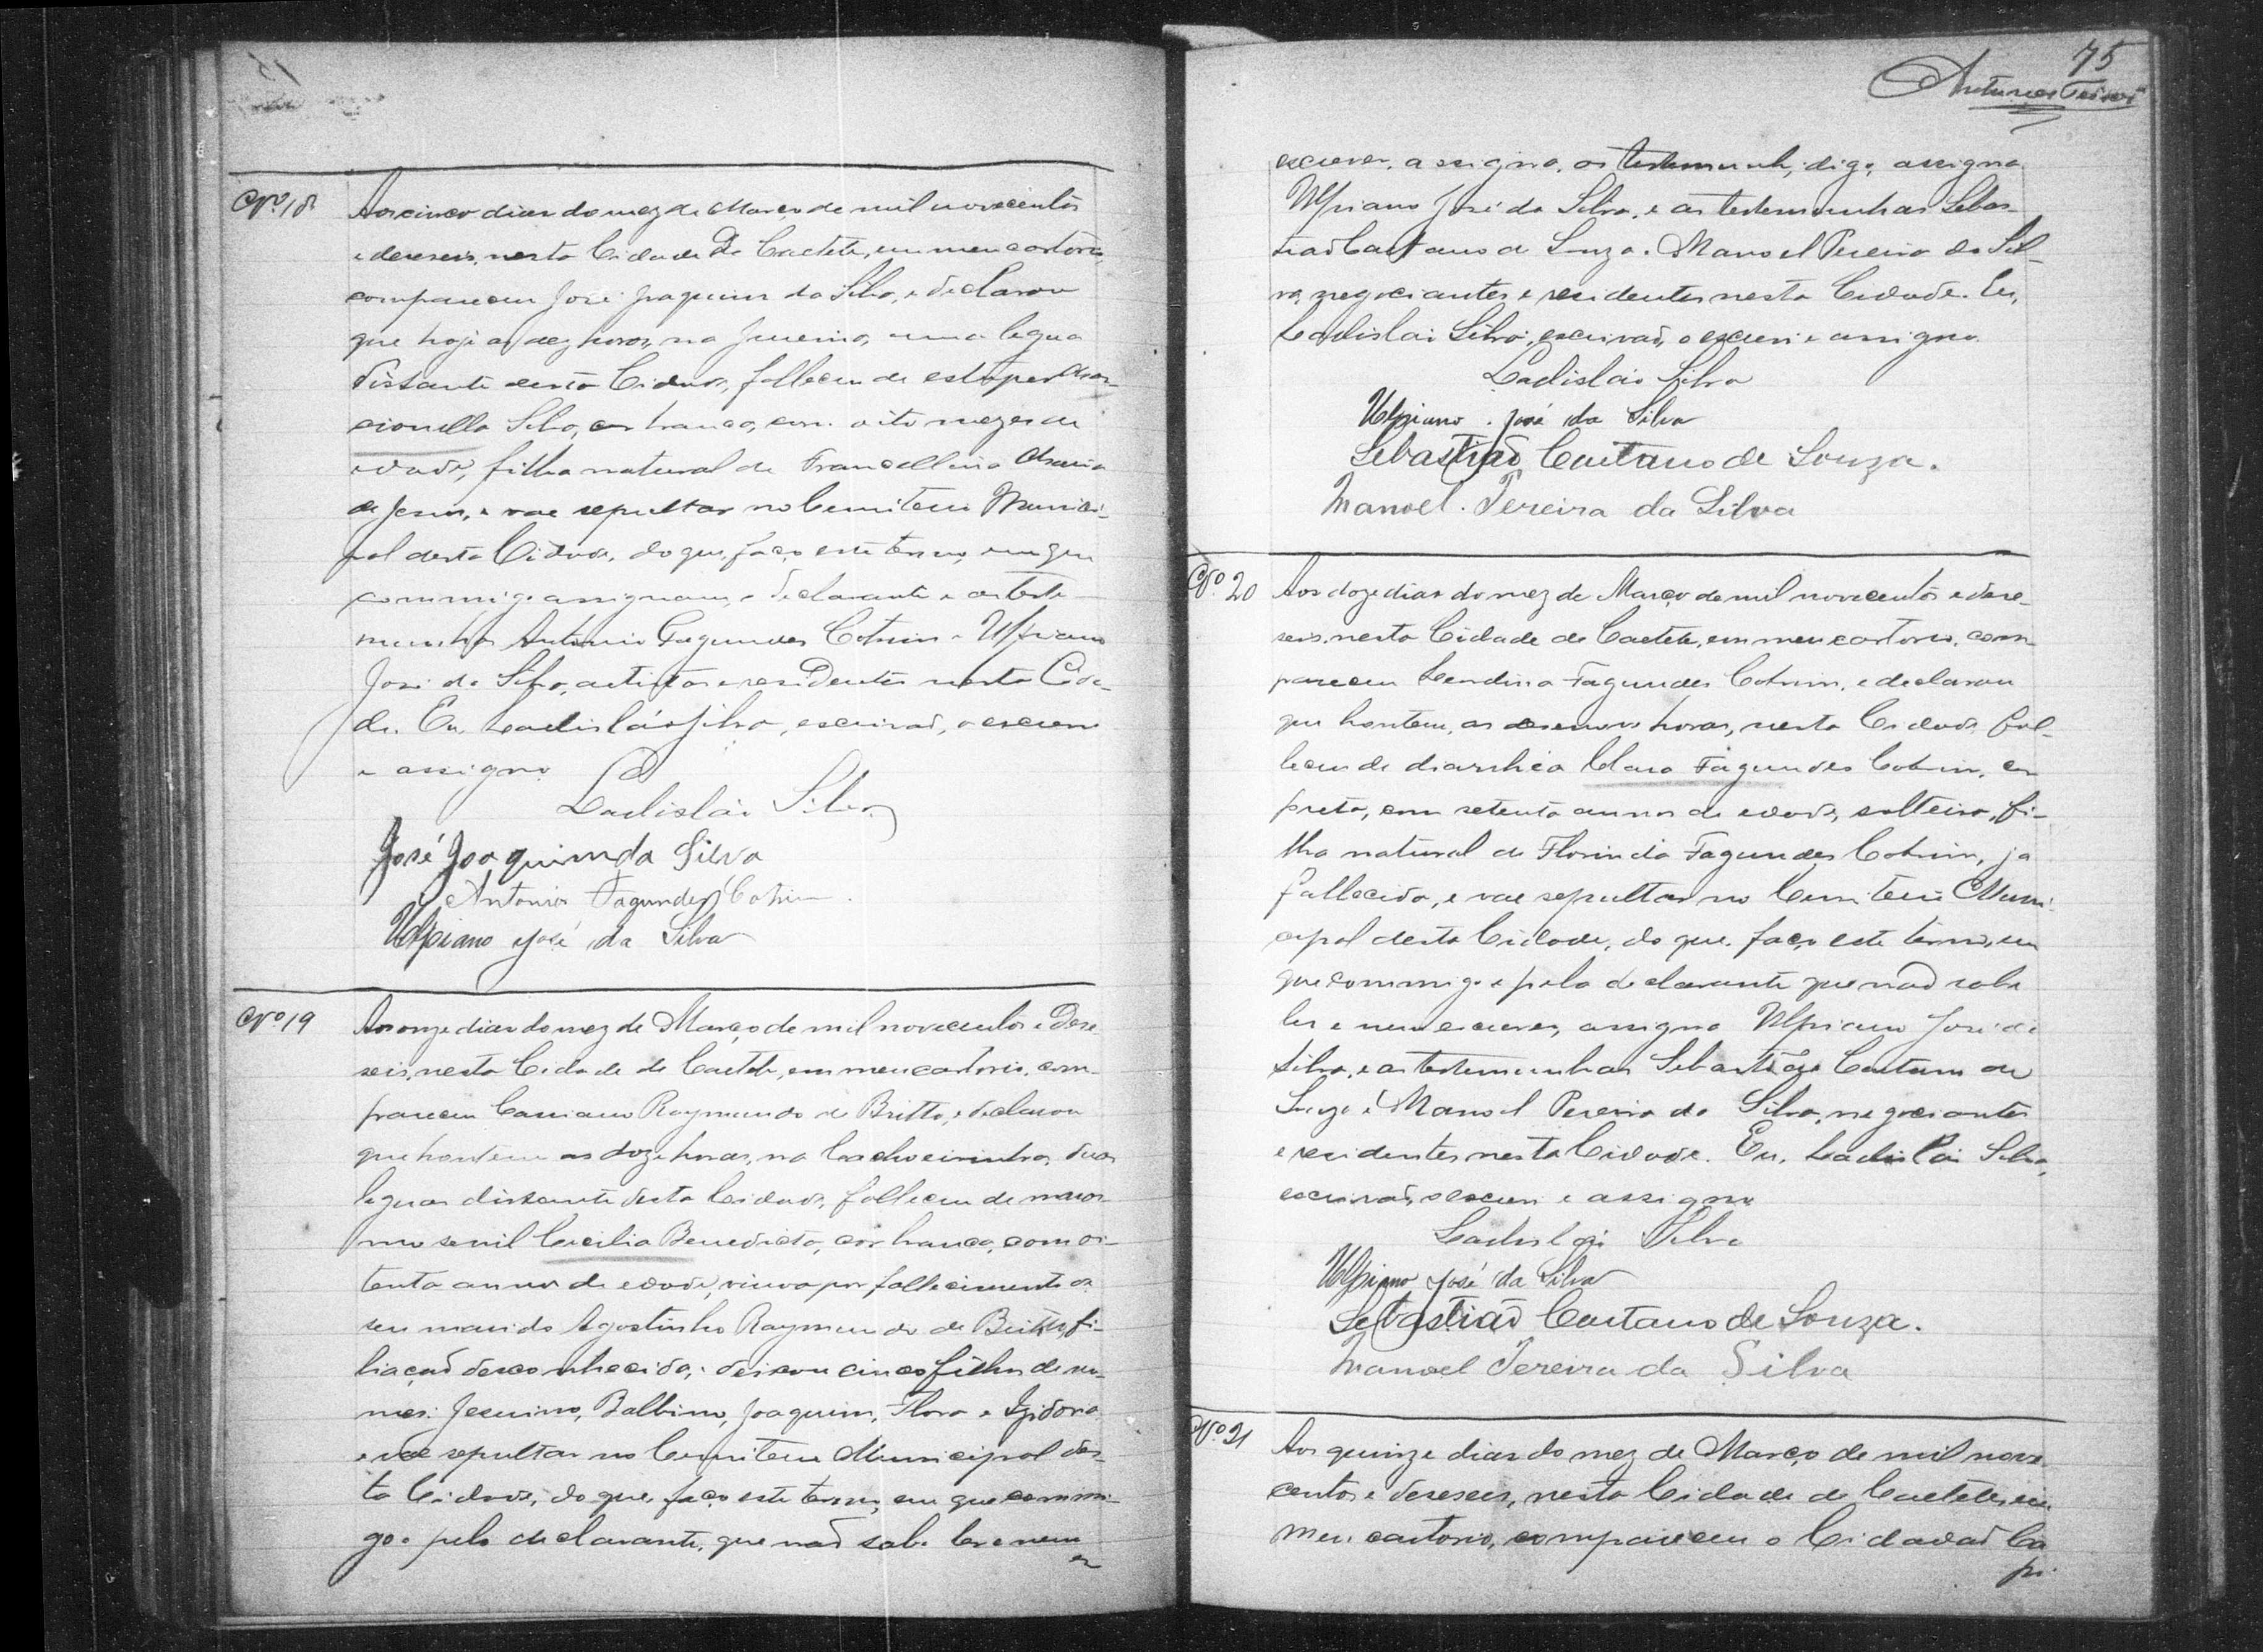 Nº 18
Aos cinco dias do mez de Março de mil novecentos
e deseseis, nesta Cidade de Caeteté, em meu cartorio,
compareceu José Joaquim da Silva, e declarou
que hoje as dez horas, na uma legua
distante desta Cidade, falleceu de estupor Mar-
cionilla Silva, cor branca, com oito mezes de
edade, filha natural de Francellina Maria
de Jesus, e vae sepultar no Cemiterio Munici-
pal desta Cidade, do que, faço este termo, em que
commigo assignam, o declarante e as teste-
munhas Antonio Fagundes Cotrim e Ulpiano
José da Silva, artistas e residentes nesta Cida-
de. Eu, Ladisláo Silva, escrivaõ, o escrevi
e assigno
Ladisláo Silva
José Joaquim da Silva
Antonio Fagundes Cotrim.
Ulpiano José da Silva
Nº 19
Aos onze dias do mez de Março de mil novecentos e dese-
seis, nesta Cidade de Caeteté, em meu cartorio, com-
pareceu Cassiano Raymundo de Britto, e declarou
que hontem as doze horas, na Cachoeirinha, duas
leguas distante desta Cidade, falleceu de maras-
mo senil Cecilia Benedicta, cor branca, com oi-
tenta annos de edade, viuva por fallecimento de
seu marido Agostinho Raymundo de Britto, fi-
liaçaõ desconhecida; deixou cinco filhos de no-
mes: Jesuino, Balbino, Joaquim, Flora e Izidora
e vae sepultar no Cemiterio Municipal des-
ta Cidade, do que, faço este termo, em que commi-
go e pelo declarante, que naõ sabe ler e nem
es
75
Antunes
escrever, assigna, as testemunh, digo, assigna
Ulpiano José da Silva, e as testemunhas Sebas-
tiaõ Caetano de Souza e Manoel Pereira da Sil-
va, negociantes e residentes nesta Cidade. Eu,
Ladisláo Silva, escrivaõ, o escrevi e assigno
Ladisláo Silva
Ulpiano José da Silva
Sebastiaõ Caetano de Souza.
Manoel Pereira da Silva
Nº 20
Aos doze dias do mez de Março de mil novecentos e dese-
seis, nesta Cidade de Caeteté, em meu cartorio, com-
pareceu Fagundes Cotrim, e declarou
que hontem, as desenove horas, nesta Cidade fal-
leceu de diarrhéa Clara Fagundes Cotrim, cor
preta, com setenta annos de edade, solteira, fi-
lha natural de Florinda Fagundes Cotrim, já
fallecida, e vae sepultar no Cemiterio Muni-
cipal desta Cidade, do que, faço este termo, em
que commigo e pelo declarante que naõ sabe
ler e nem escrever, assigna Ulpiano José da
Silva, e as testemunhas Sebastião Caetano de
Souza e Manoel Pereira da Silva, negociantes
e residentes nesta Cidade. Eu, Ladisláo Silva,
escrivaõ, o escrevi e assigno
Ladisláo Silva
Ulpiano José da Silva
Sebastiaõ Caetano de Souza.
Manoel Pereira da Silva
Nº 21
Aos quinze dias do mez de Março de mil nove-
centos e deseseis, nesta Cidade de Caeteté, em
meu cartorio, compareceu o Cidadaõ Ca
pi-